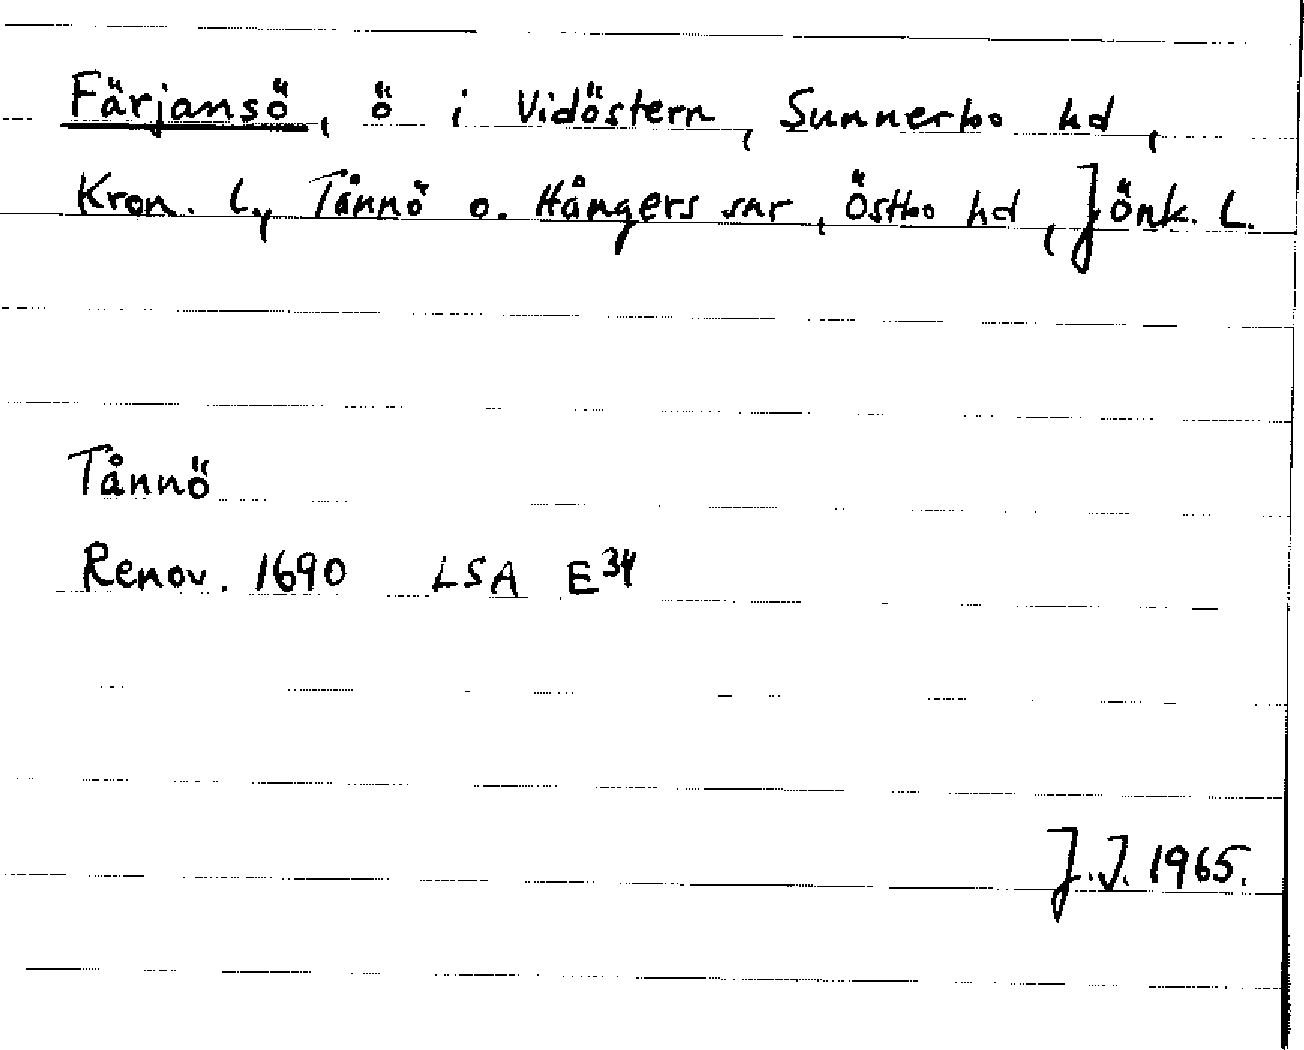 Färjansö, ö i Vidöstern, Sunnerbo hd,
Kron. l., Tånnö o. Hångers snr, Östbo hd, Jönk. L.
Tånnö
Renov. 1690 LSA E34
J.J. 1965.